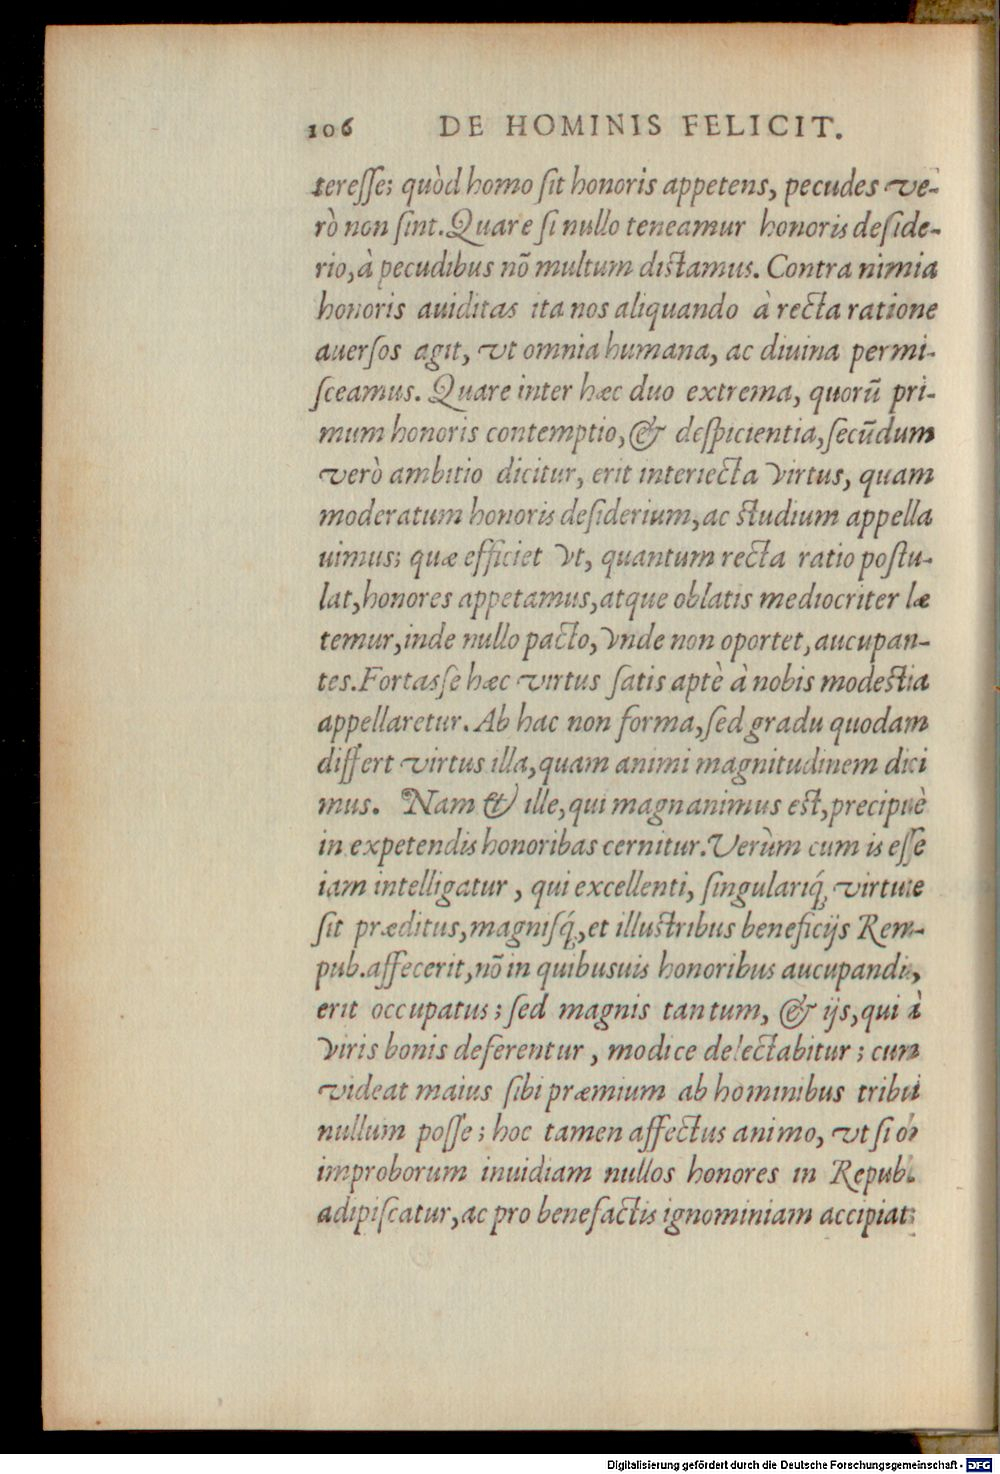 106 DE HOMINIS FELICIT.
teresse; quòd homo sit honoris appetens, pecudes ve-
rò non sint. Quare si nullo teneamur honoris deside-
rio, à pecudibus nõ multum distamus. Contra nimia
honoris auiditas ita nos aliquando à recta ratione
auersos agit, vt omnia humana, ac diuina permi-
sceamus. Quare inter hæc duo extrema, quorũ pri-
mum honoris contemptio, & despicientia, secũdum
verò ambitio dicitur, erit interiecta virtus, quam
moderatum honoris desiderium, ac studium appella
uimus; quæ efficiet vt, quantum recta ratio postu-
lat, honores appetamus, atque oblatis mediocriter læ
temur, inde nullo pacto, vnde non oportet, aucupan-
tes. Fortasse hæc virtus satis aptè à nobis modestia
appellaretur. Ab hac non forma, sed gradu quodam
differt virtus illa, quam animi magnitudinem dici
mus. Nam & ille, qui magnanimus est, precipuè
in expetendis honoribas cernitur. Verùm cum is esse
iam intelligatur, qui excellenti, singulariq́; virtute
sit præditus, magnisq́;, et illustribus beneficijs Rem-
pub. affecerit, nõ in quibusuis honoribus aucupandis,
erit occupatus; sed magnis tantum, & ijs, qui à
viris bonis deferentur, modice delectabitur; cum
videat maius sibi præmium ab hominibus tribui
nullum posse; hoc tamen affectus animo, vt si ob
improborum inuidiam nullos honores in Repub.
adipiscatur, ac pro benefactis ignominiam accipiat;
Digitalisierung gefördert durch die Deutsche Forschungsgemeinschaft - DFG